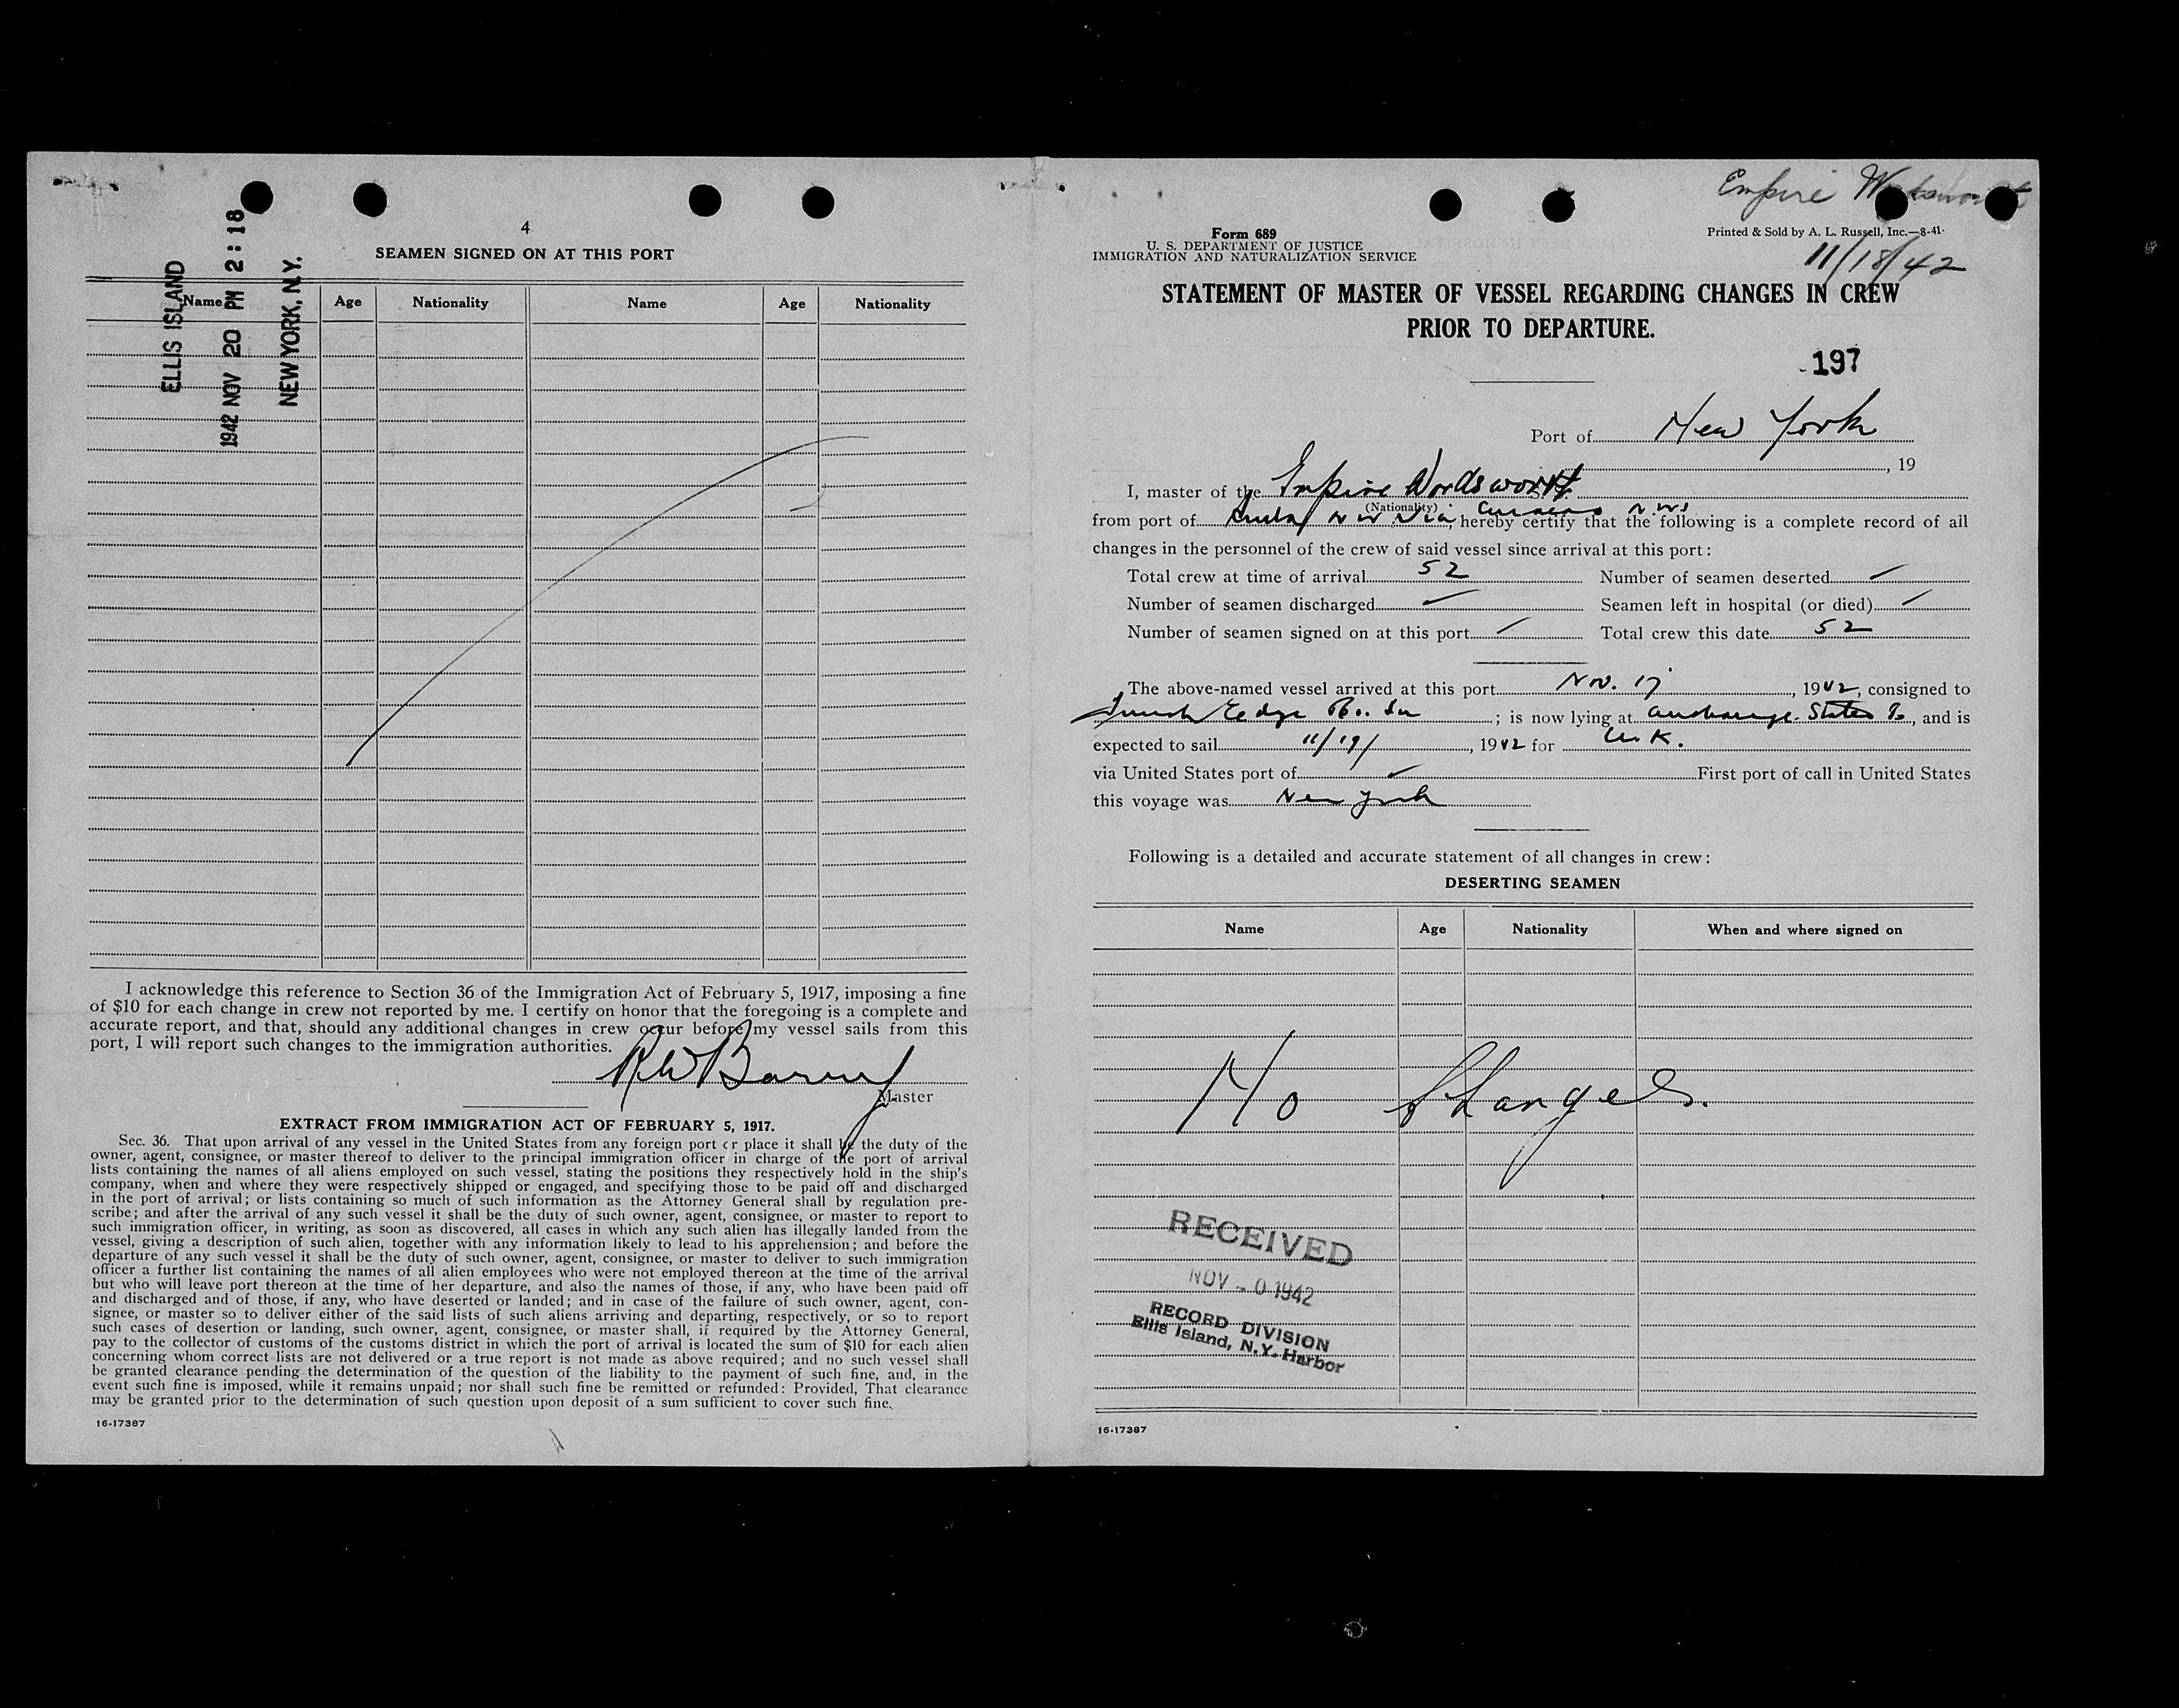 4
SEAMEN SIGNED ON AT THIS PORT
ELLIS ISLAND
1942 NOV 20 PM 2:18
NEW YORK, N.Y.
Name Age Nationality Name Age Nationality
I acknowledge this reference to Section 36 of the Immigration Act of February 5, 1917, imposing a fine
of $10 for each change in crew not reported by me. I certify on honor that the foregoing is a complete and
accurate report, and that, should any additional changes in crew occur before my vessel sails from this
port, I will report such changes to the immigration authorities.
Master
EXTRACT FROM IMMIGRATION ACT OF FEBRUARY 5, 1917.
Sec. 36. That upon arrival of any vessel in the United States from any foreign port or place it shall be the duty of the
owner, agent, consignee, or master thereof to deliver to the principal immigration officer in charge of the port of arrival
lists containing the names of all aliens employed on such vessel, stating the positions they respectively hold in the ship's
company, when and where they were respectively shipped or engaged, and specifying those to be paid off and discharged
in the port of arrival; or lists containing so much of such information as the Attorney General shall by regulation pre-
scribe; and after the arrival of any such vessel it shall be the duty of such owner, agent, consignee, or master to report to
such immigration officer, in writing, as soon as discovered, all cases in which any such alien has illegally landed from the
vessel, giving a description of such alien, together with any information likely to lead to his apprehension; and before the
departure of any such vessel it shall be the duty of such owner, agent, consignee, or master to deliver to such immigration
officer a further list containing the names of all alien employees who were not employed thereon at the time of the arrival
but who will leave port thereon at the time of her departure, and also the names of those, if any, who have been paid off
and discharged and of those, if any, who have deserted or landed; and in case of the failure of such owner, agent, con-
signee, or master so to deliver either of the said lists of such aliens arriving and departing, respectively, or so to report
such cases of desertion or landing, such owner, agent, consignee, or master shall, if required by the Attorney General,
pay to the collector of customs of the customs district in which the port of arrival is located the sum of $10 for each alien
concerning whom correct lists are not delivered or a true report is not made as above required; and no such vessel shall
be granted clearance pending the determination of the question of the liability to the payment of such fine, and, in the
event such fine is imposed, while it remains unpaid; nor shall such fine be remitted or refunded: Provided, That clearance
may be granted prior to the determination of such question upon deposit of a sum sufficient to cover such fine.
16-17387
Empire
Form 689
U. S. DEPARTMENT OF JUSTICE
IMMIGRATION AND NATURALIZATION SERVICE
Printed & Sold by A. L. Russell, Inc.—8-41
11/18/42
STATEMENT OF MASTER OF VESSEL REGARDING CHANGES IN CREW
PRIOR TO DEPARTURE.
197
Port of New York
, 19
I, master of the Empire Wordsworth
(Nationality)
from port of via Curacao N.W.I, hereby certify that the following is a complete record of all
changes in the personnel of the crew of said vessel since arrival at this port:
Total crew at time of arrival 52 Number of seamen deserted
Number of seamen discharged Seamen left in hospital (or died)
Number of seamen signed on at this port Total crew this date 52
The above-named vessel arrived at this port Nov. 17, 1942, consigned to
; is now lying at anchorage, and is
expected to sail 11/19/, 1942 for U.K.
via United States port of First port of call in United States
this voyage was New York
Following is a detailed and accurate statement of all changes in crew:
DESERTING SEAMEN
Name Age Nationality When and where signed on
No Changes.
RECEIVED
NOV 0 1942
RECORD DIVISION
Ellis Island, N.Y. Harbor
16-17387